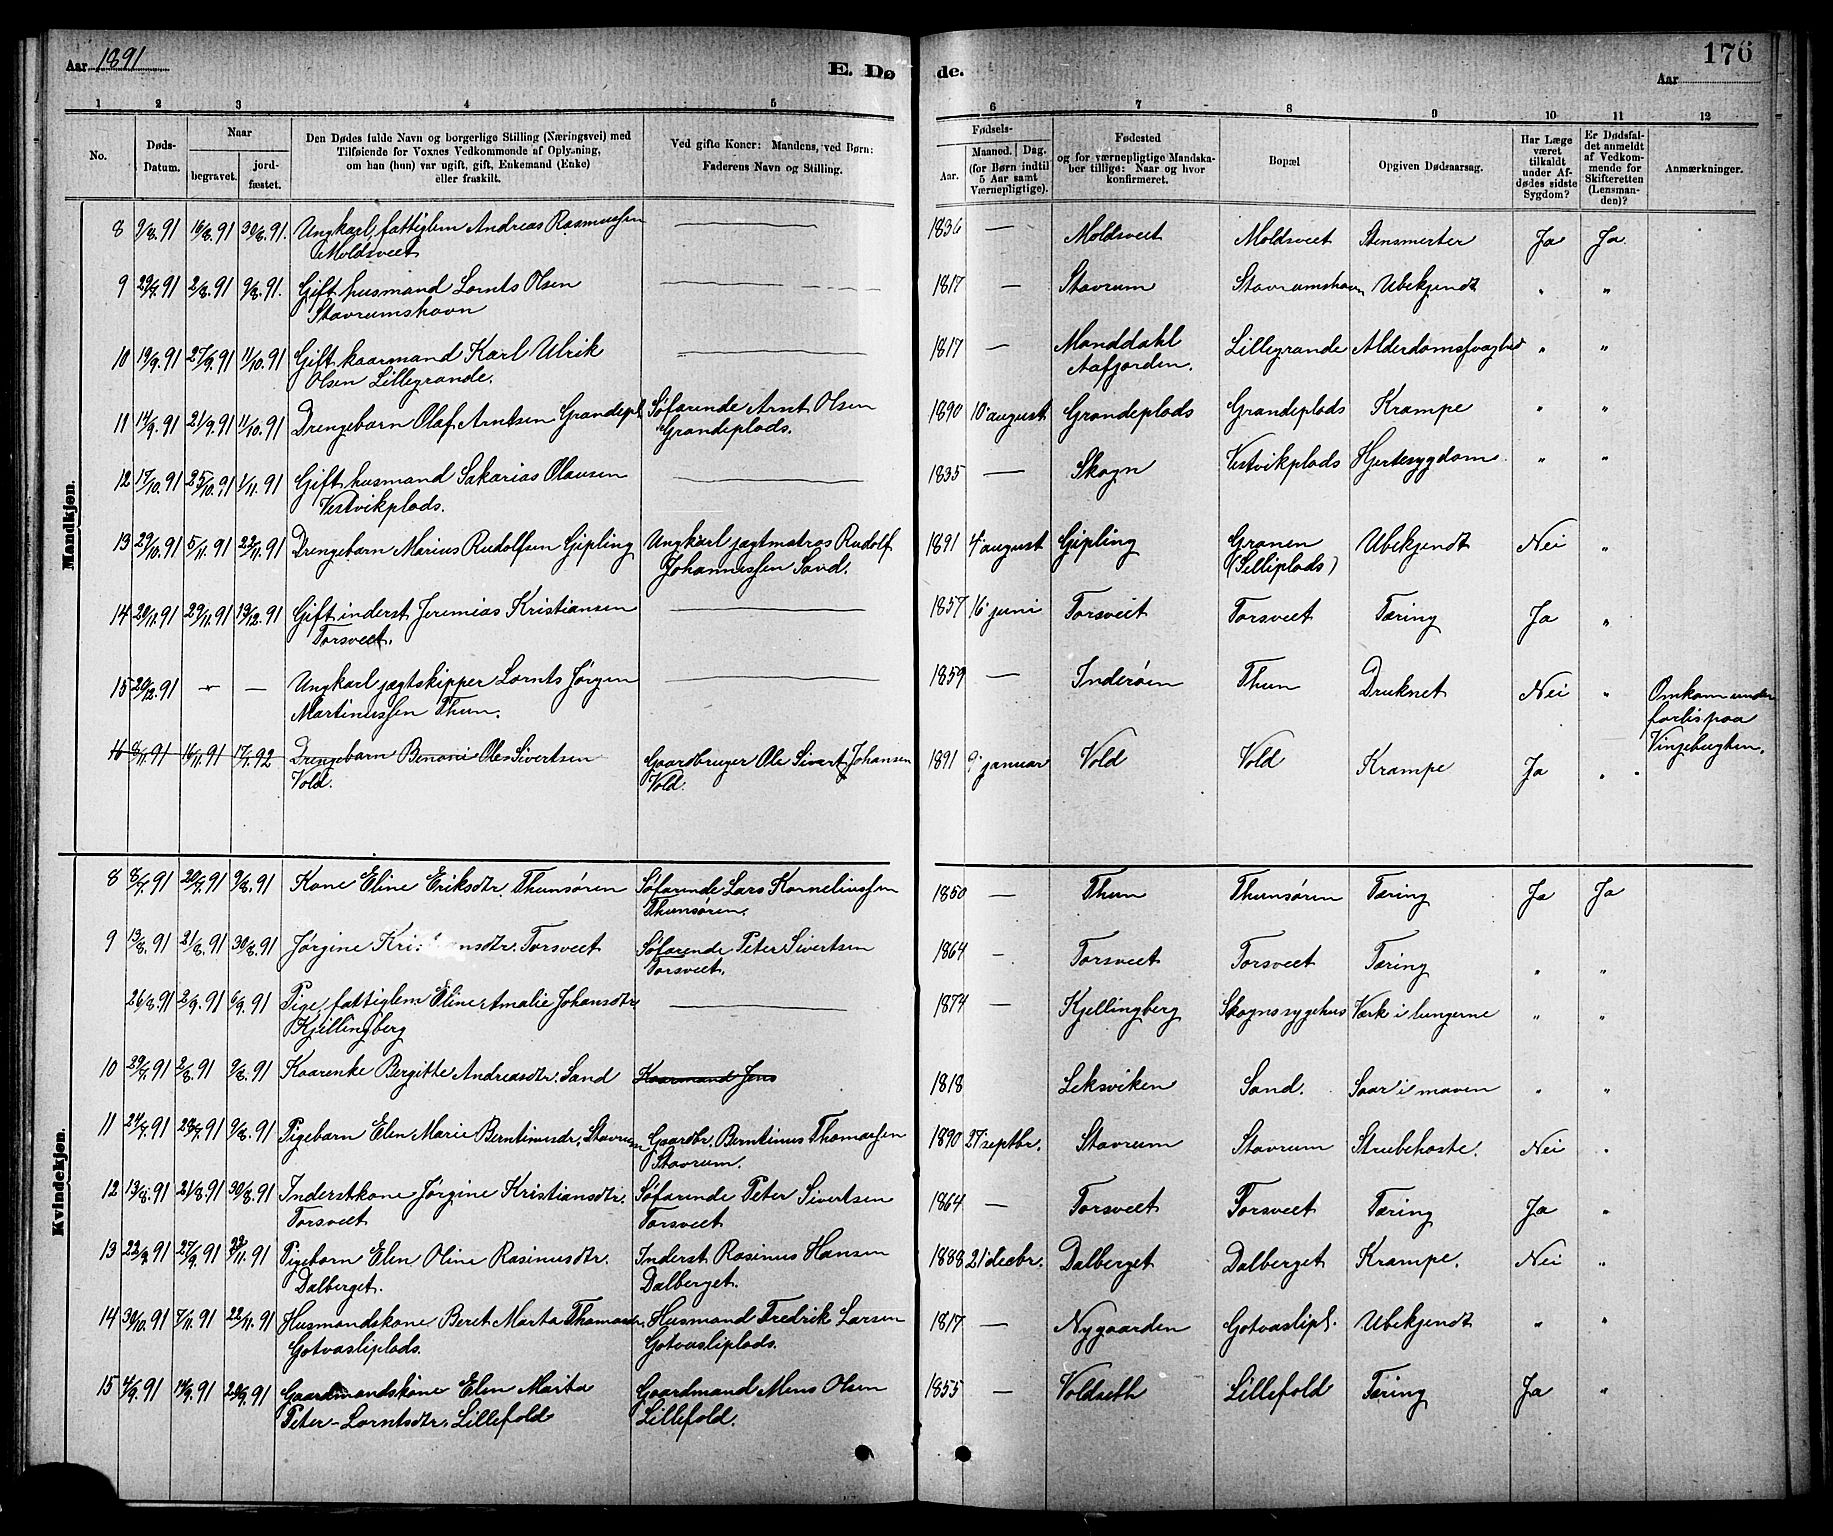 Aar 1891 E. Døde. 176
Aar
1 2 3 4 5 6 7 8 9 10 11 12
No. Døds-Datum. Naar begravet. jordfæstet. Den Dødes fulde Navn og borgerlige Stilling (Næringsvei) med Tilføiende for Voxnes Vedkommende af Oplysning, om han (hun) var ugift, gift, Enkemand (Enke) eller fraskilt. Ved gifte Koner: Mandens, ved Børn: Faderens Navn og Stilling. Fødsels- Aar. Maaned. Dag. (for Børn indtil 5 Aar samt Værnepligtige). Fødested og for værnepligtige Mandskaber tillige: Naar og hvor konfirmeret. Bopæl Opgiven Dødsaarsag. Har Læge været tilkaldt under Afdødes sidste Sygdom? Er Dødsfaldet anmeldt af Vedkommende for Skifteretten (Lensmanden)? Anmærkninger.
Mandkjøn.
8 9/8. 91 16/8 91 30/8. 91. Ungkarl, fattiglem Andreas Rasmussen 1836 — Moldsveet Moldsveet Stensmerter Ja Ja
Moldsveet
9 29/7. 91 2/8. 91 9/8. 91. Gift husmand Lornts Olsen 1817 — Stavrum Stavrumshavn Ubekjendt " "
Stavrumshavn
10 19/9. 91 27/9. 91 11/10. 91 Gift kaarmand Karl Ulrik 1817 — Manddahl Lillegrande Alderdomssvaghed " "
Olsen Lillegrande. Aafjorden.
11 14/9. 91 21/9. 91 11/10. 91 Drengebarn Olaf Arntsen Grandepl. Søfarende Arnt Olsen 1890 10' august Grandeplads Grandeplads Krampe " "
Grandeplads.
12 17/10. 91 25/10. 91 1/11. 91 Gift husmand Sakarias Olausen 1835 — Skogn Vestvikplads Hjertesygdom " "
Vestvikplads.
13 29/10. 91 5/11. 91 22/11. 91 Drengebarn Marius Rudolfsen Gipling Ungkarl jagtmatros Rudolf 1891 4' august Gipling Granen Ubekjendt Nei "
Johannessen Sand. (Selliplads)
14 20/11. 91 29/11. 91 19/12. 91 Gift inderst Jeremias Kristiansen 1857 16' juni Torsveet Torsveet Tæring Ja "
Torsveet.
15 20/12. 91 — — Ungkarl jagtskipper Lornts Jørgen 1859 — Inderøen Thun Druknet Nei " Omkom under
Martinussen Thun. forlis paa
Vingebugten.
16 8/11. 91 16/11. 91 17/1. 92 Drengebarn Benoni Ole Sivertsen Gaardbruger Ole Sivert Johansen 1891 9' januar Vold Vold Krampe Ja " "
Vold. Vold.
Kvindekjøn.
8 8/7. 91 20/7. 91 9/8. 91 Kone Eline Eriksdtr. Thunsøren Søfarende Lars Korneliussen 1850 — Thun Thunsøren Tæring Ja Ja
Thunsøren.
9 13/8. 91 21/8. 91 30/8. 91 Jørgine Kri ansdtr. Torsveet Søfarende Peter Sivertsen 1864 — Torsveet Torsveet Tæring " "
Torsveet.
26/8. 91 2/9. 91 6/9. 91 Pige, fattiglem Eline Amalie Johansdtr. 1874 — Kjellingberg Skogns sygehus Værk i lungerne " "
Kjellingberg
10 29/7. 91 2/8. 91 9/8. 91 Kaarenke Bergitte Andreasdtr. Sand Kaarmand Jens 1818 Leksviken Sand. Saar i maven " "
11 24/7. 91 28/7. 91 9/8. 91 Pigebarn Elen Marie Berntinusdr. Stavrum Gaardbr. Berntinus Thomassen 1890 27' septbr. Stavrum Stavrum Strubehoste. Nei "
Stavrum.
12 13/8. 91 21/8. 91 30/8. 91 Inderstkone Jørgine Kristiansdtr. Søfarende Peter Sivertsen 1864 — Torsveet Torsveet Tæring Ja "
Torsveet Torsveet
13 22/9. 91 27/9. 91 22/11. 91 Pigebarn Elen Oline Rasinusdtr. Inderst Rasinus Hansen 1888 21' decbr. Dalberget Dalberget Krampe. Nei "
Dalberget. Dalberget.
14 30/10. 91 7/11. 91 22/11. 91 Husmandskone Beret Marta Husmand Fredrik Larsen 1817 — Nygaarden Gotvaslipl. Ubekjendt " "
Gotvasliplads. Gotvasliplads.
15 4/9. 91 14/9. 91 20/9. 91 Gaardmandskone Elen Marta Gaardmand Mens Olsen 1855 — Voldseth Lillefold Tæring Ja "
Peter-Lorntsdtr. Lillefold Lillefold.